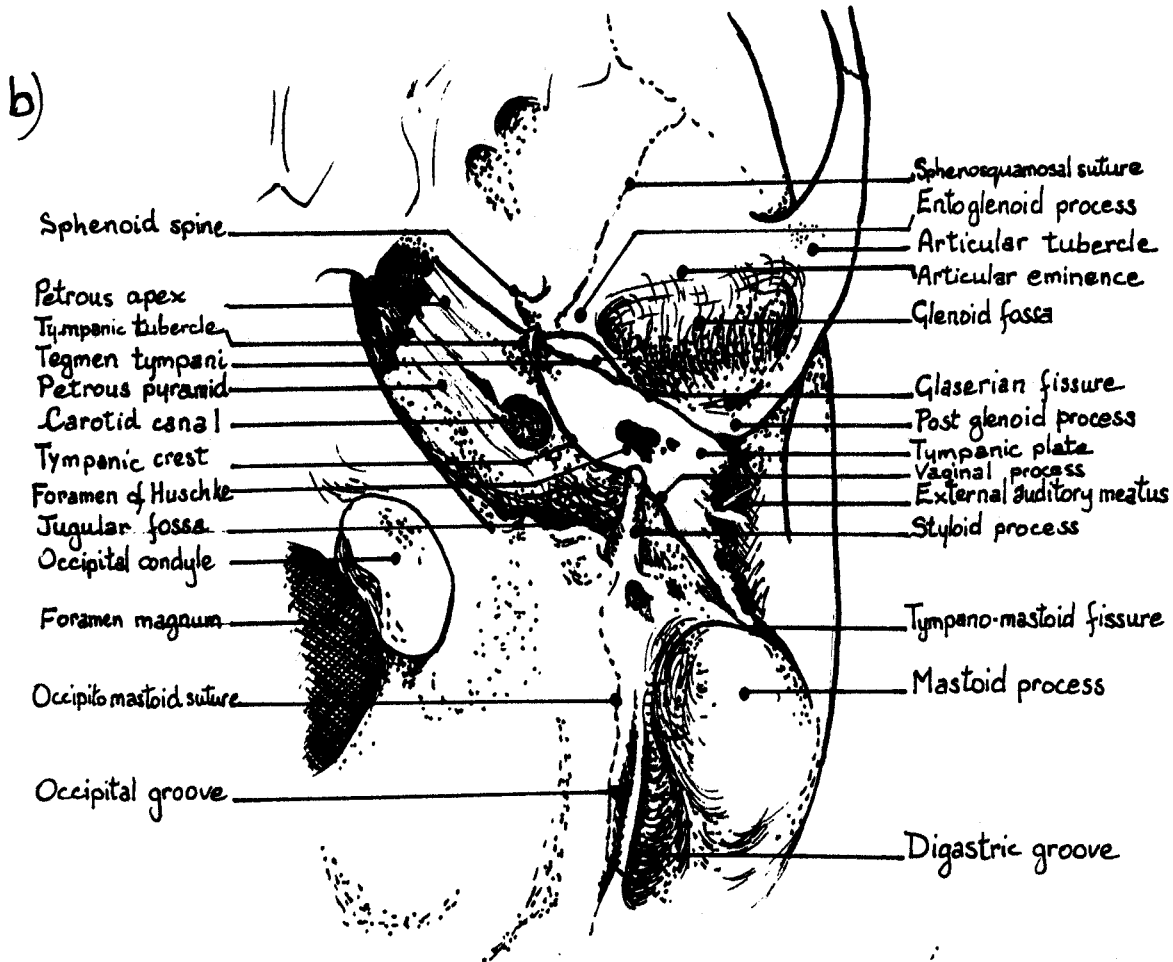 b)
Sphenoid spine
Petrous apex
Tympanic tubercle
Tegmen tympani
Petrous pyramid
Carotid canal
Tympanic crest
Foramen of Huschke
Jugular fossa
Occipital condyle
Foramen magnum
Occipito mastoid suture
Occipital groove
Sphenosquamosal suture
Entoglenoid process
Articular tubercle
Articular eminence
Glenoid fossa
Glaserian fissure
Post glenoid process
Tympanic plate
Vaginal process
External auditory meatus
Styloid process
Tympano-mastoid fissure
Mastoid process
Digastric groove